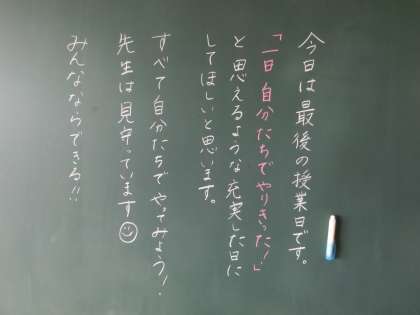 今日は最後の授業日です。
「一日 自分たちでやりきった！」
と思えるような充実した日に
してほしいと思います。
すべて自分たちで やってみよう！
先生は見守っています
みんなならできる!!